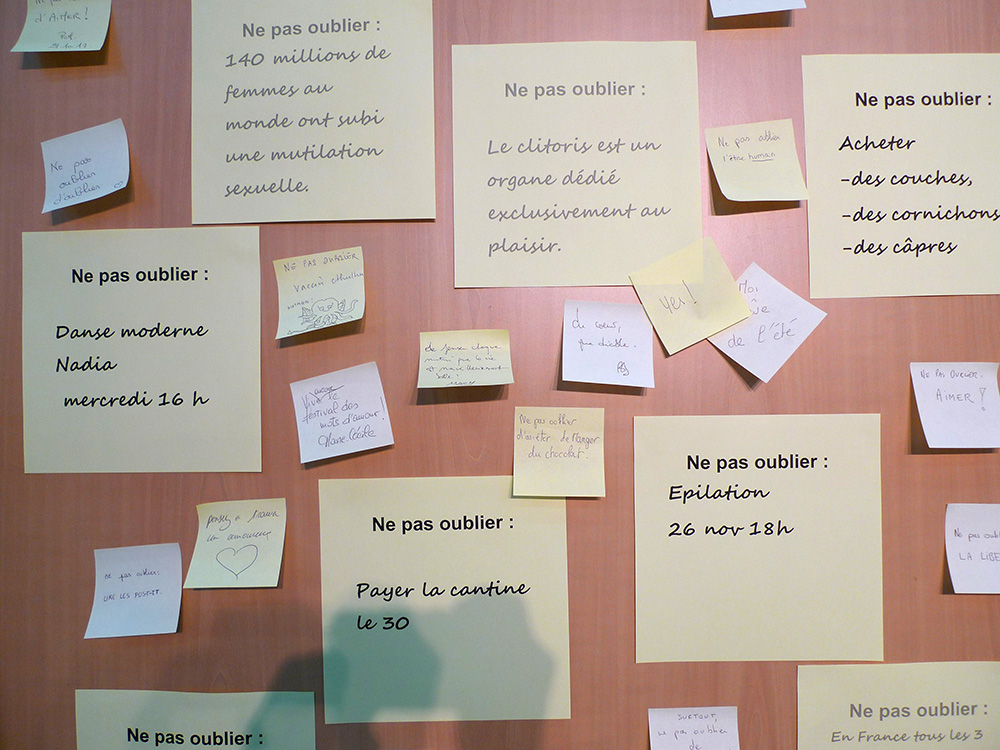 Ne pas oublier
d'AIMER !
Ne pas oublier :
140 millions de
femmes au
monde ont subi
une mutilation
sexuelle.
Ne pas oublier :
Le clitoris est un
organe dédié
exclusivement au
plaisir.
Ne pas oublier :
Acheter
-des couches,
-des cornichons
-des câpres
Ne pas
oublier
d'oublier
Ne pas oublier
l'être humain
Ne pas oublier :
Danse moderne
Nadia
mercredi 16 h
NE PAS OUBLIER
vaccin cthulhu
Yes !
Moi
de l'été
Du cœur,
que diable.
matin que la vie
Vive le
festival des
mots d'amour !
Marie-Cécile
Ne pas oublier
d'arrêter de manger
du chocolat.
NE PAS OUBLIER :
AIMER !
Ne pas oublier :
Epilation
26 nov 18h
Ne pas oublier :
Payer la cantine
le 30
pensez à
un amoureux
ne pas oublier :
LIRE LES POST-IT.
Ne pas
LA LIBE
Ne pas oublier :
SURTOUT,
ne pas oublier
de
Ne pas oublier :
En France tous les 3